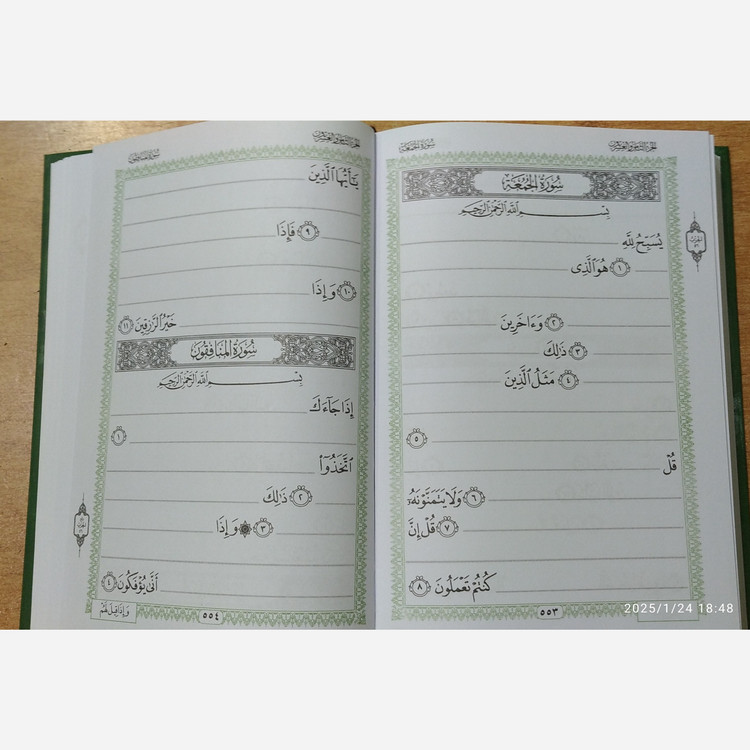 الجزء الثامن والعشرون
سورة الجمعة
سُورَةُ الجُمُعَةِ
بِسْمِ اللَّهِ الرَّحْمَٰنِ الرَّحِيمِ
يُسَبِّحُ لِلَّهِ
١ هُوَ ٱلَّذِى
٢ وَءَاخَرِينَ
٣ ذَٰلِكَ
٤ مَثَلُ ٱلَّذِينَ
٥
قُلْ
٦ وَلَا يَتَمَنَّوْنَهُۥ
٧ قُلْ إِنَّ
كُنتُمْ تَعْمَلُونَ ٨
٥٥٣
2025/1/24 18:48
الجزء الثامن والعشرون
سورة المنافقون
يَٰٓأَيُّهَا ٱلَّذِينَ
٩ فَإِذَا
١٠ وَإِذَا
خَيْرُ ٱلرَّٰزِقِينَ ١١
سُورَةُ المُنَافِقُونَ
بِسْمِ اللَّهِ الرَّحْمَٰنِ الرَّحِيمِ
إِذَا جَآءَكَ
١
ٱتَّخَذُوٓا۟
٢ ذَٰلِكَ
٣ ۞ وَإِذَا
أَنَّىٰ يُؤْفَكُونَ ٤
وَإِذَا قِيلَ لَهُمْ
٥٥٤